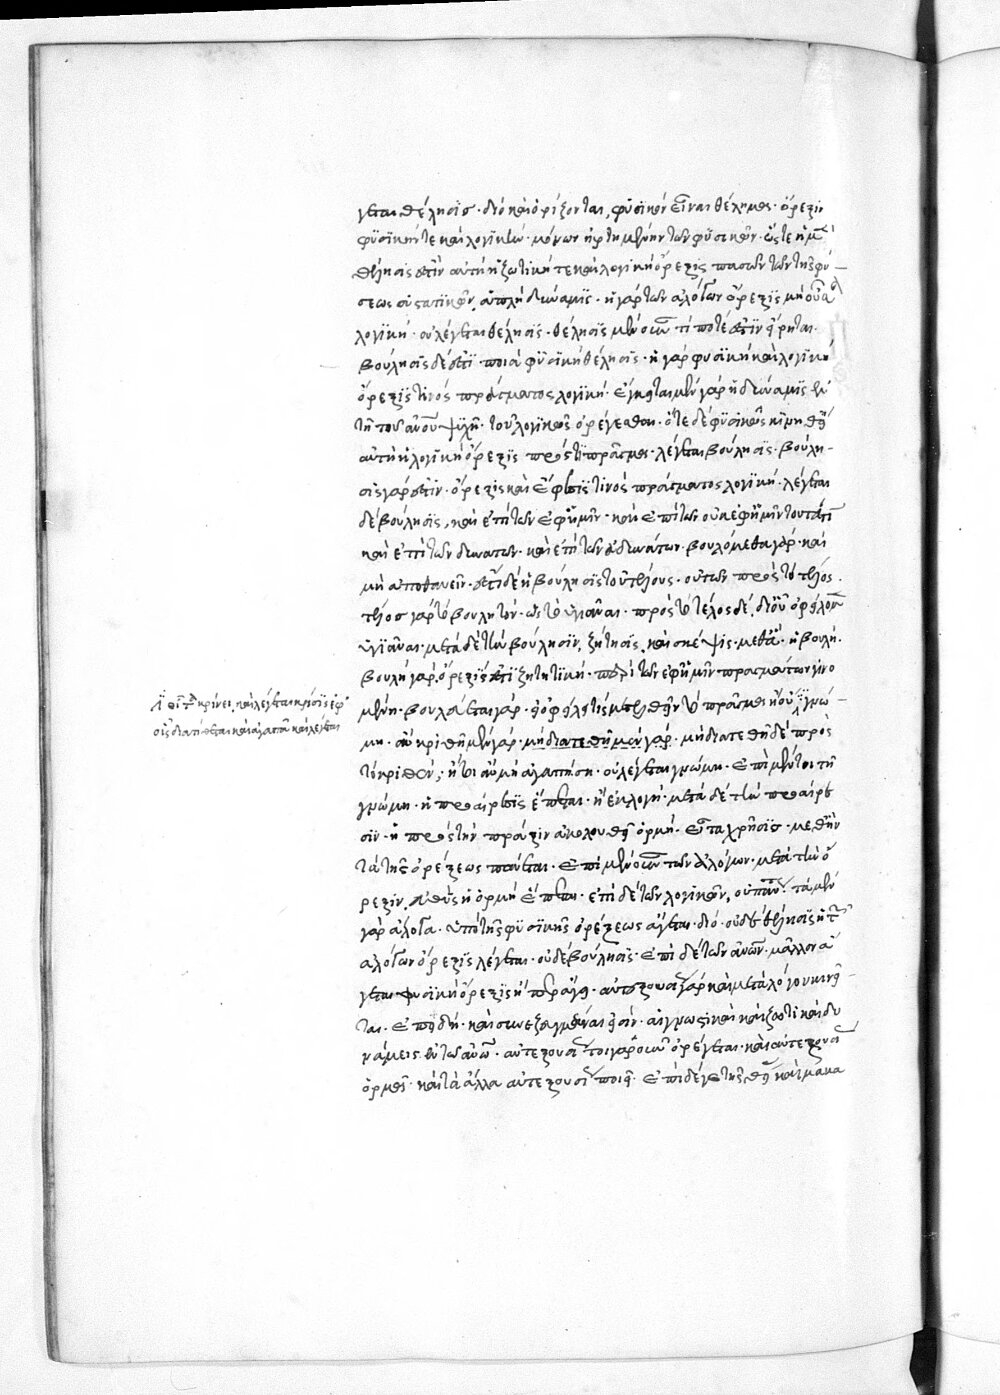 γεται θέλησις· διὸ καὶ ὁρίζονται, φυσικὸν εἶναι θέλημα· ὄρεξιν
φυσικήν τε καὶ λογικὴν· μόνων ἠρτημένην τῶν φυσικῶν· ὥστε ἡ μὲν
θέλησίς ἐστιν αὐτὴ ἡ ζωτική τε καὶ λογικὴ ὄρεξις πασῶν τῶν τῆς φύ
σεως συστατικῶν, ἁπλὴ δύναμις· ἡ γὰρ τῶν ἀλόγων ὄρεξις μὴ οὖσα
λογικὴ· οὐ λέγεται θέλησις· θέλησις μὲν οὖν τί ποτέ ἐστιν εἴρηται.
βούλησις δέ ἐστι ποιὰ φυσικὴ θέλησις· ἡ γὰρ φυσικὴ καὶ λογικὴ
ὄρεξις τινὸς πράγματος λογικὴ· ἔγκειται μὲν γὰρ ἡ δύναμις ἐν
τῆ τοῦ ἀνου ψυχῆ· τοῦ λογικῶς ὀρέγεσθαι· ὅτε δὲ φυσικῶς κινηθῆ
αὐτὴ ἡ λογικὴ ὄρεξις πρός τι πράγμα· λέγεται βούλησις· βούλη-
σις γάρ ἐστιν· ὄρεξις καὶ ἔφεσις τινὸς πράγματος λογικὴ· λέγεται
δὲ βούλησις, καὶ ἐπὶ τῶν ἐφ' ἡμῖν· καὶ ἐπὶ τῶν οὐκ ἐφ' ἡμῖν τουτέστι
καὶ ἐπὶ τῶν δυνατῶν· καὶ ἐπὶ τῶν ἀδυνάτων· βουλόμεθα γὰρ· καὶ
μὴ ἀποθανεῖν· ἔστι δὲ ἡ βούλησις τοῦ τέλους· οὐ τῶν πρὸς τὸ τέλος.
τέλος γὰρ τὸ βουλητόν· ὡς τὸ ὑγιᾶναι· πρὸς τὸ τέλος δέ, δι' οὗ ὀφείλομεν
ὑγιᾶναι· μετὰ δὲ τὴν βούλησιν, ζήτησις, καὶ σκέψις· μετὰ ταῦτα· ἡ βουλή.
βουλὴ γάρ, ὄρεξίς ἐστι ζητητικὴ· περὶ τῶν ἐφ' ἡμῖν πραγμάτων γινο
μένη· βουλεύεται γὰρ· εἰ ὀφείλει τις μετελθεῖν τὸ πρᾶγμα ἢ οὔ· γνώ
μη· ἂν κριθῆ μὲν γάρ· μὴ διατεθῆ μὲν γάρ. μὴ διατεθῆ δὲ πρὸς
τὸ κριθέν· ἤτοι ἂν μὴ ἀγαπήση· οὐ λέγεται γνώμη· ἐπὶ μὲν τοι τῆ
γνώμη· ἡ προαίρεσις ἕπεται· ἢ ἐκλογή· μετὰ δὲ τὴν προαίρε
σιν· ἡ πρὸς τὴν πρᾶξιν ἀκολουθεῖ ὁρμή· εἶτα χρῆσις· μεθ' ἣν
τὰ τῆς ὀρέξεως παύεται· ἐπὶ μὲν οὖν τῶν ἀλόγων· μετὰ τὴν ὄ
ρεξιν, εὐθὺς ἡ ὁρμὴ ἕπεται· ἐπὶ δὲ τῶν λογικῶν, οὐ πάντως· τὰ μὲν
γὰρ ἄλογα· ὑπὸ τῆς φυσικῆς ὀρέξεως ἄγεται· διὸ· οὐδὲ θέλησις ἡ τῶν
ἀλόγων ὄρεξις λέγεται· οὐδὲ βούλησις· ἐπὶ δὲ τῶν ἀνων· μᾶλλον ἄ
γεται φυσικὴ ὄρεξις ἤπερ ἄγει· αὐτεξουσίως γὰρ καὶ μετὰ λόγου κινεῖ
ται· ἐπειδὴ· καὶ συνεζευγμέναι εἰσὶν· αἱ γνωστικαὶ καὶ ζωτικαὶ δυ
νάμεις ἐν τῶ ἀνω· αὐτεξουσίως τοιγαροῦν ὀρέγεται· καὶ αὐτεξουσίως
ὁρμεῖ· καὶ τὰ ἄλλα αὐτεξουσίως ποιεῖ· ἐπὶ δέ γε τῆς θείας καὶ μακα
κρίνει, καὶ λέγεται κρίσις ἐφ'
οἷς διατίθεται καὶ ἀγαπᾶν καὶ λέγεται